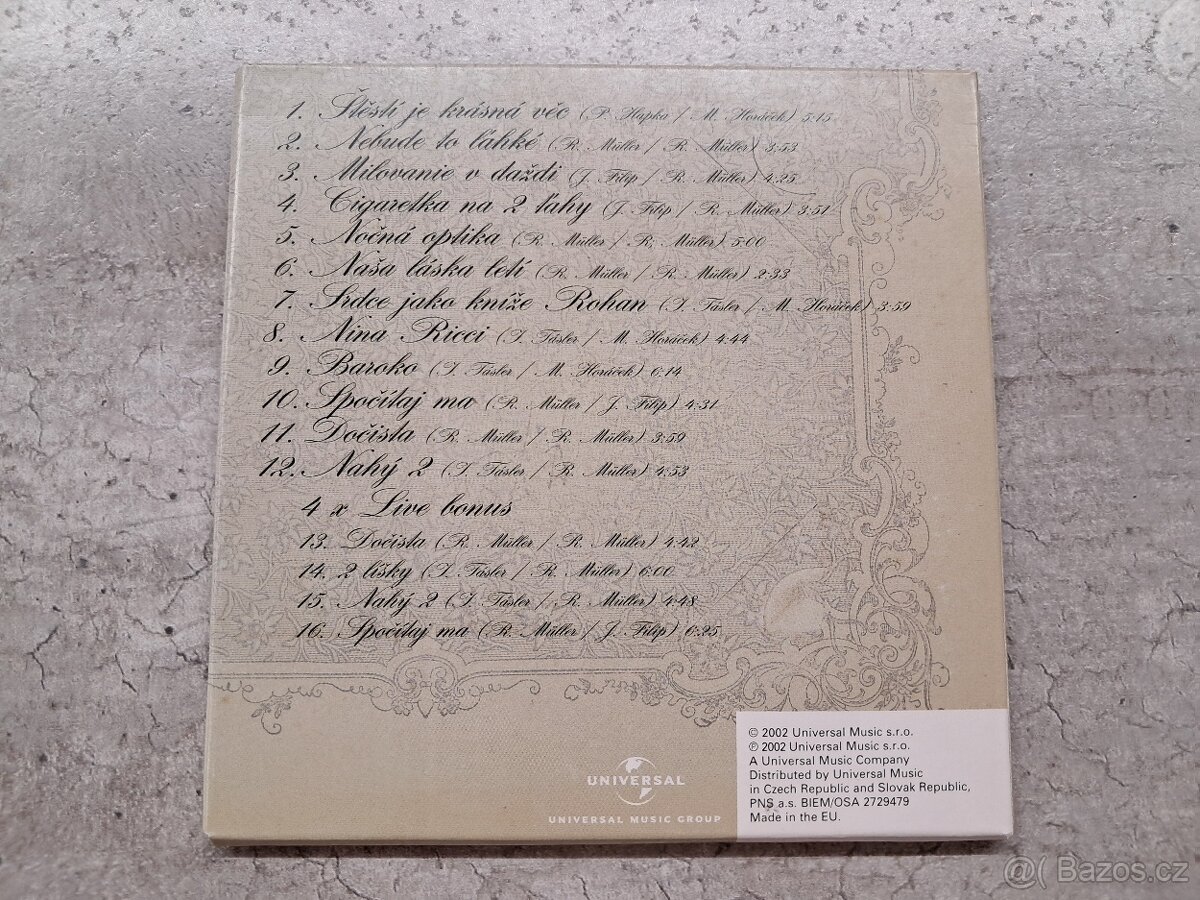 1. Štěstí je krásná věc (P. Hapka / M. Horáček) 5:15
2. Nebude to ľahké (R. Müller / R. Müller) 3:53
3. Milovanie v daždi (J. Filip / R. Müller) 4:25
4. Cigaretka na 2 ťahy (J. Filip / R. Müller) 3:51
5. Nočná optika (R. Müller / R. Müller) 5:00
6. Naša láska letí (R. Müller / R. Müller) 2:33
7. Srdce jako kníže Rohan (I. Tásler / M. Horáček) 3:59
8. Nina Ricci (I. Tásler / M. Horáček) 4:44
9. Baroko (I. Tásler / M. Horáček) 6:14
10. Spočítaj ma (R. Müller / J. Filip) 4:31
11. Dočista (R. Müller / R. Müller) 3:59
12. Nahý 2 (I. Tásler / R. Müller) 4:53
4 x Live bonus
13. Dočista (R. Müller / R. Müller) 4:42
14. 2 líšky (I. Tásler / R. Müller) 6:00
15. Nahý 2 (I. Tásler / R. Müller) 4:48
16. Spočítaj ma (R. Müller / J. Filip) 6:25
UNIVERSAL
UNIVERSAL MUSIC GROUP
© 2002 Universal Music s.r.o.
℗ 2002 Universal Music s.r.o.
A Universal Music Company
Distributed by Universal Music
in Czech Republic and Slovak Republic,
PNS a.s. BIEM/OSA 2729479
Made in the EU.
@( Bazos.cz